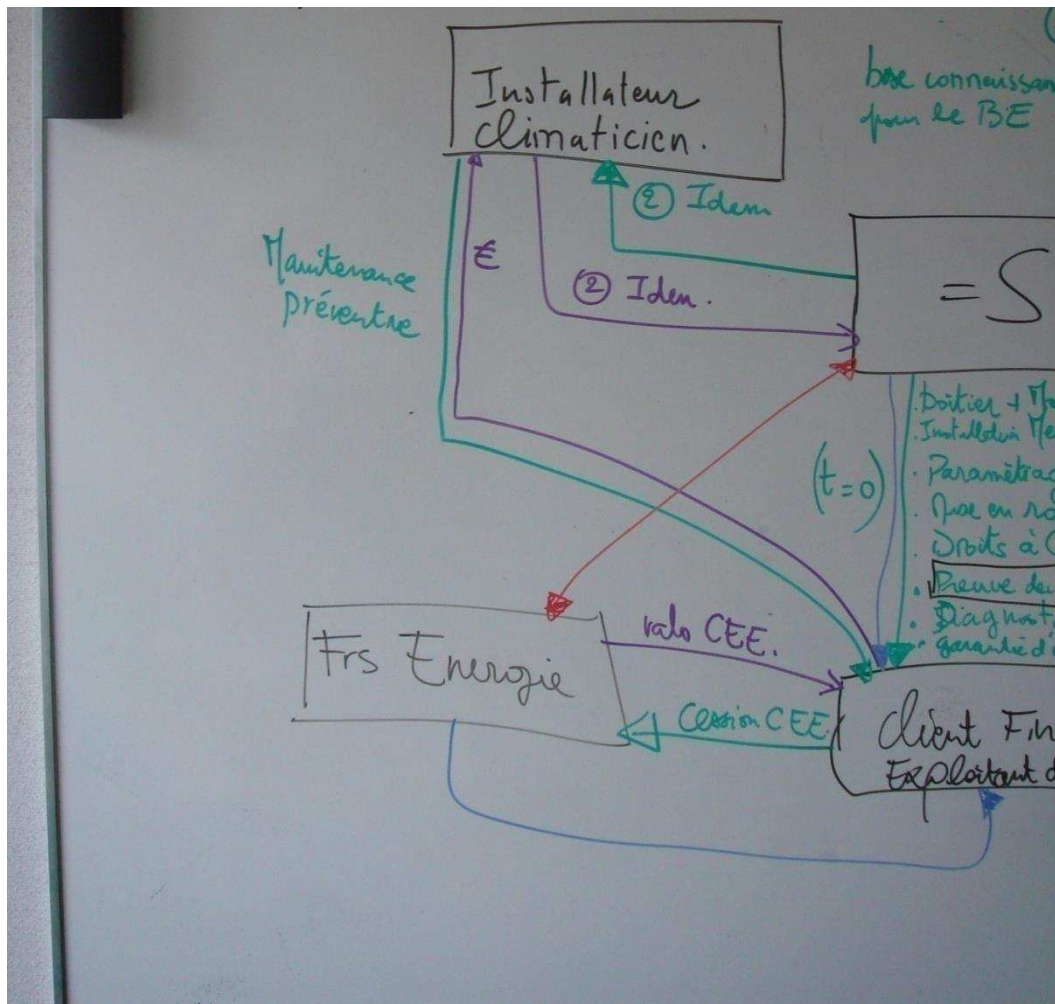 Installateur
climaticien.
base connaissan
pour le BE
② Idem
€
② Idem.
= S
Maintenance
préventive
(t=0)
. Boitier + 
. Installation Me
. Paramétrag
. Mise en
. Droits à C
. Preuve de
. Diagnosti
. garantie d'
Frs Energie
valo CEE.
Cession CEE
Client Fin
Exploitant d